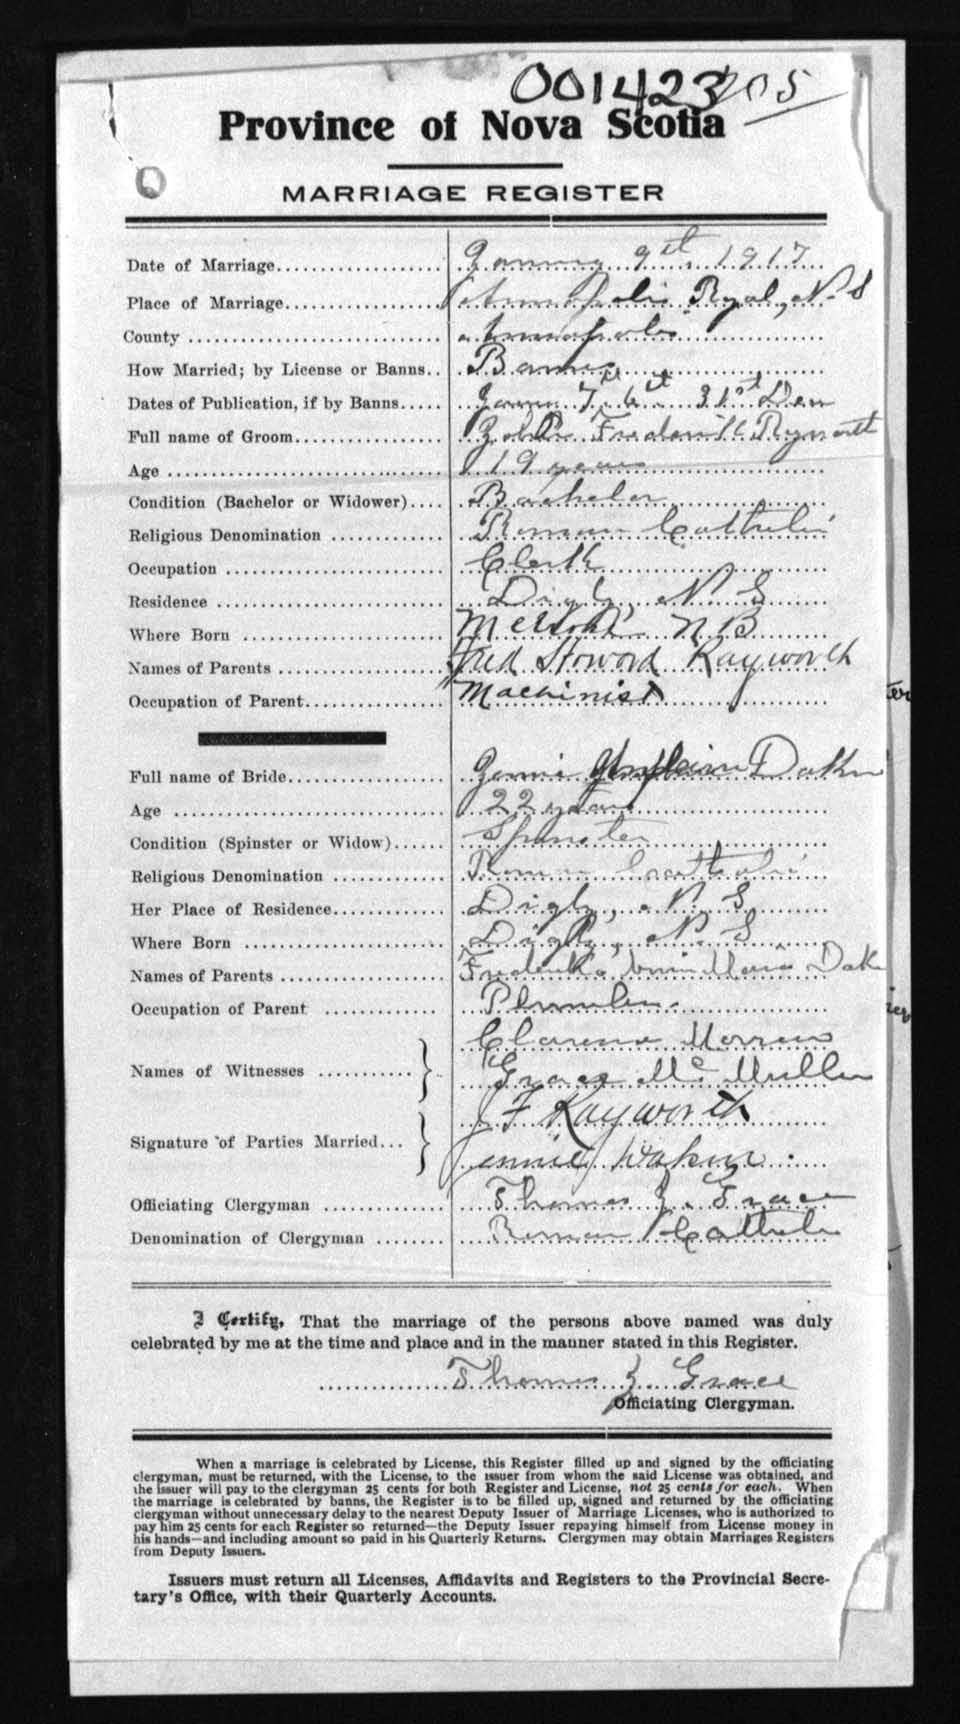 001423 205
Province of Nova Scotia
MARRIAGE REGISTER
Date of Marriage January 9th 1917
Place of Marriage Annapolis Royal, N.S
County Annapolis
How Married; by License or Banns.. Banns
Dates of Publication, if by Banns 7th 6th 31st Dec
Full name of Groom John Frederick
Age 19 years
Condition (Bachelor or Widower) Bachelor
Religious Denomination Roman Catholic
Occupation Clerk
Residence Digby, N. S
Where Born N B
Names of Parents Fred Howard Rayworth
Occupation of Parent Machinist
Full name of Bride Dakin
Age 22 years
Condition (Spinster or Widow) Spinster
Religious Denomination Roman Catholic
Her Place of Residence Digby, N. S
Where Born Digby, N. S
Names of Parents Frederick Maria Dak
Occupation of Parent Plumber.
Names of Witnesses Clarence
Grace McMullen
Signature of Parties Married J F Rayworth
Jennie Dakin.
Officiating Clergyman Thomas J. Grace
Denomination of Clergyman Roman Catholic
I Certify, That the marriage of the persons above named was duly
celebrated by me at the time and place and in the manner stated in this Register.
Thomas J. Grace
Officiating Clergyman.
When a marriage is celebrated by License, this Register filled up and signed by the officiating
clergyman, must be returned, with the License, to the issuer from whom the said License was obtained, and
the issuer will pay to the clergyman 25 cents for both Register and License, not 25 cents for each. When
the marriage is celebrated by banns, the Register is to be filled up, signed and returned by the officiating
clergyman without unnecessary delay to the nearest Deputy Issuer of Marriage Licenses, who is authorized to
pay him 25 cents for each Register so returned—the Deputy Issuer repaying himself from License money in
his hands—and including amount so paid in his Quarterly Returns. Clergymen may obtain Marriages Registers
from Deputy Issuers.
Issuers must return all Licenses, Affidavits and Registers to the Provincial Secre-
tary's Office, with their Quarterly Accounts.